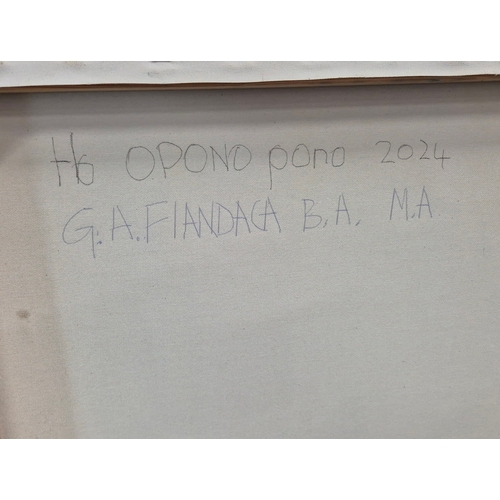 Ho OPONO pono 2024
G.A. FIANDACA B.A. M.A